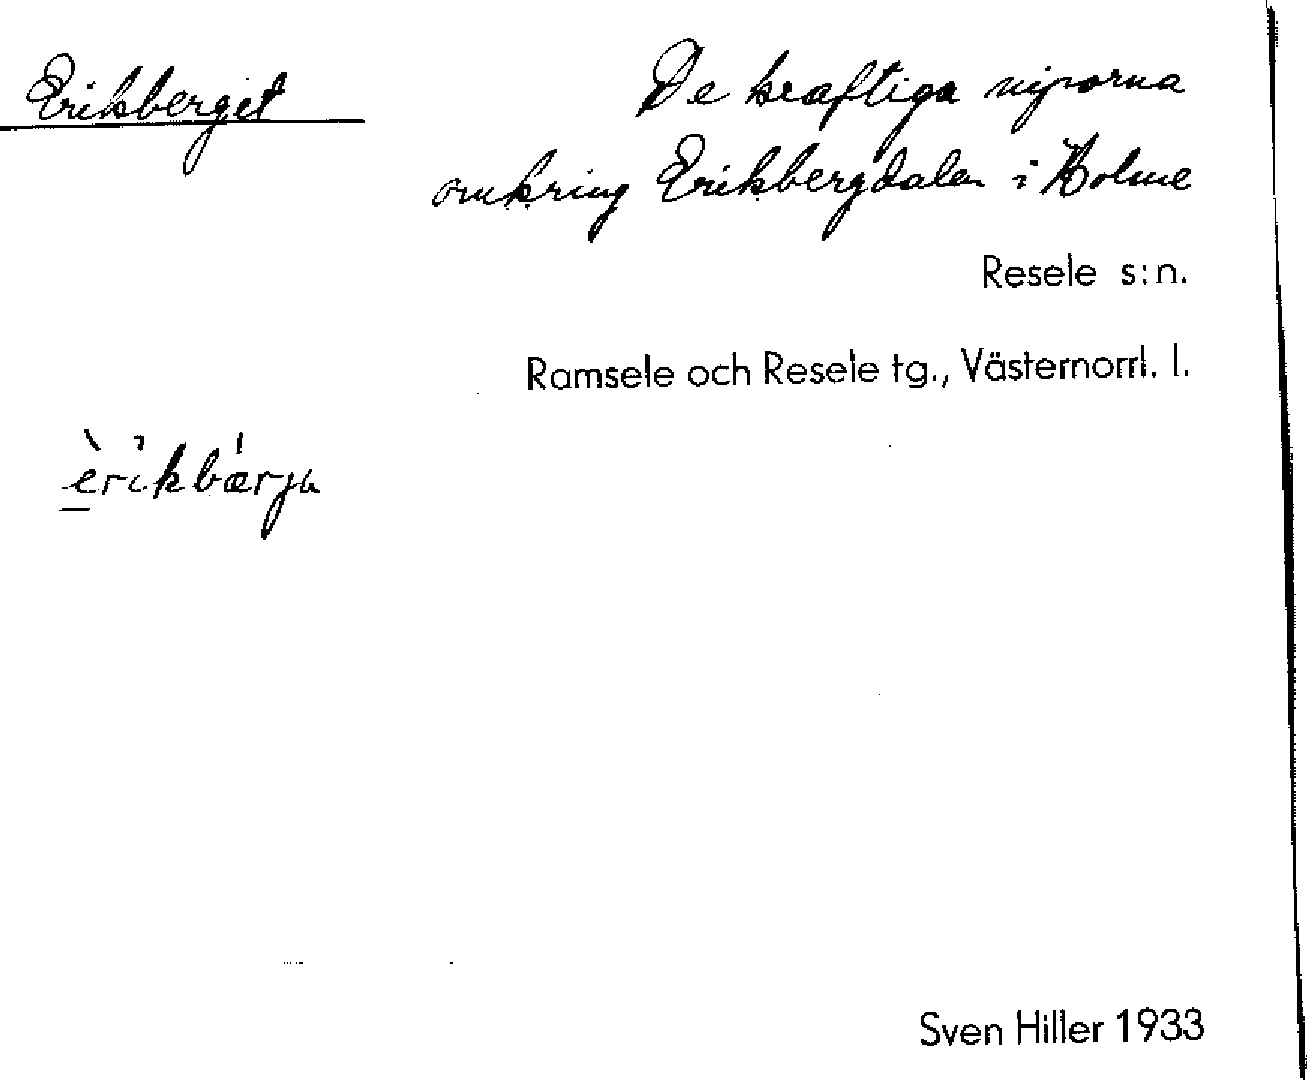 Erikberget
De kraftiga niporna
omkring Erikbergdalen i Holme
Resele s:n.
Ramsele och Resele tg., Västernorrl. l.
èrikbærja
Sven Hiller 1933